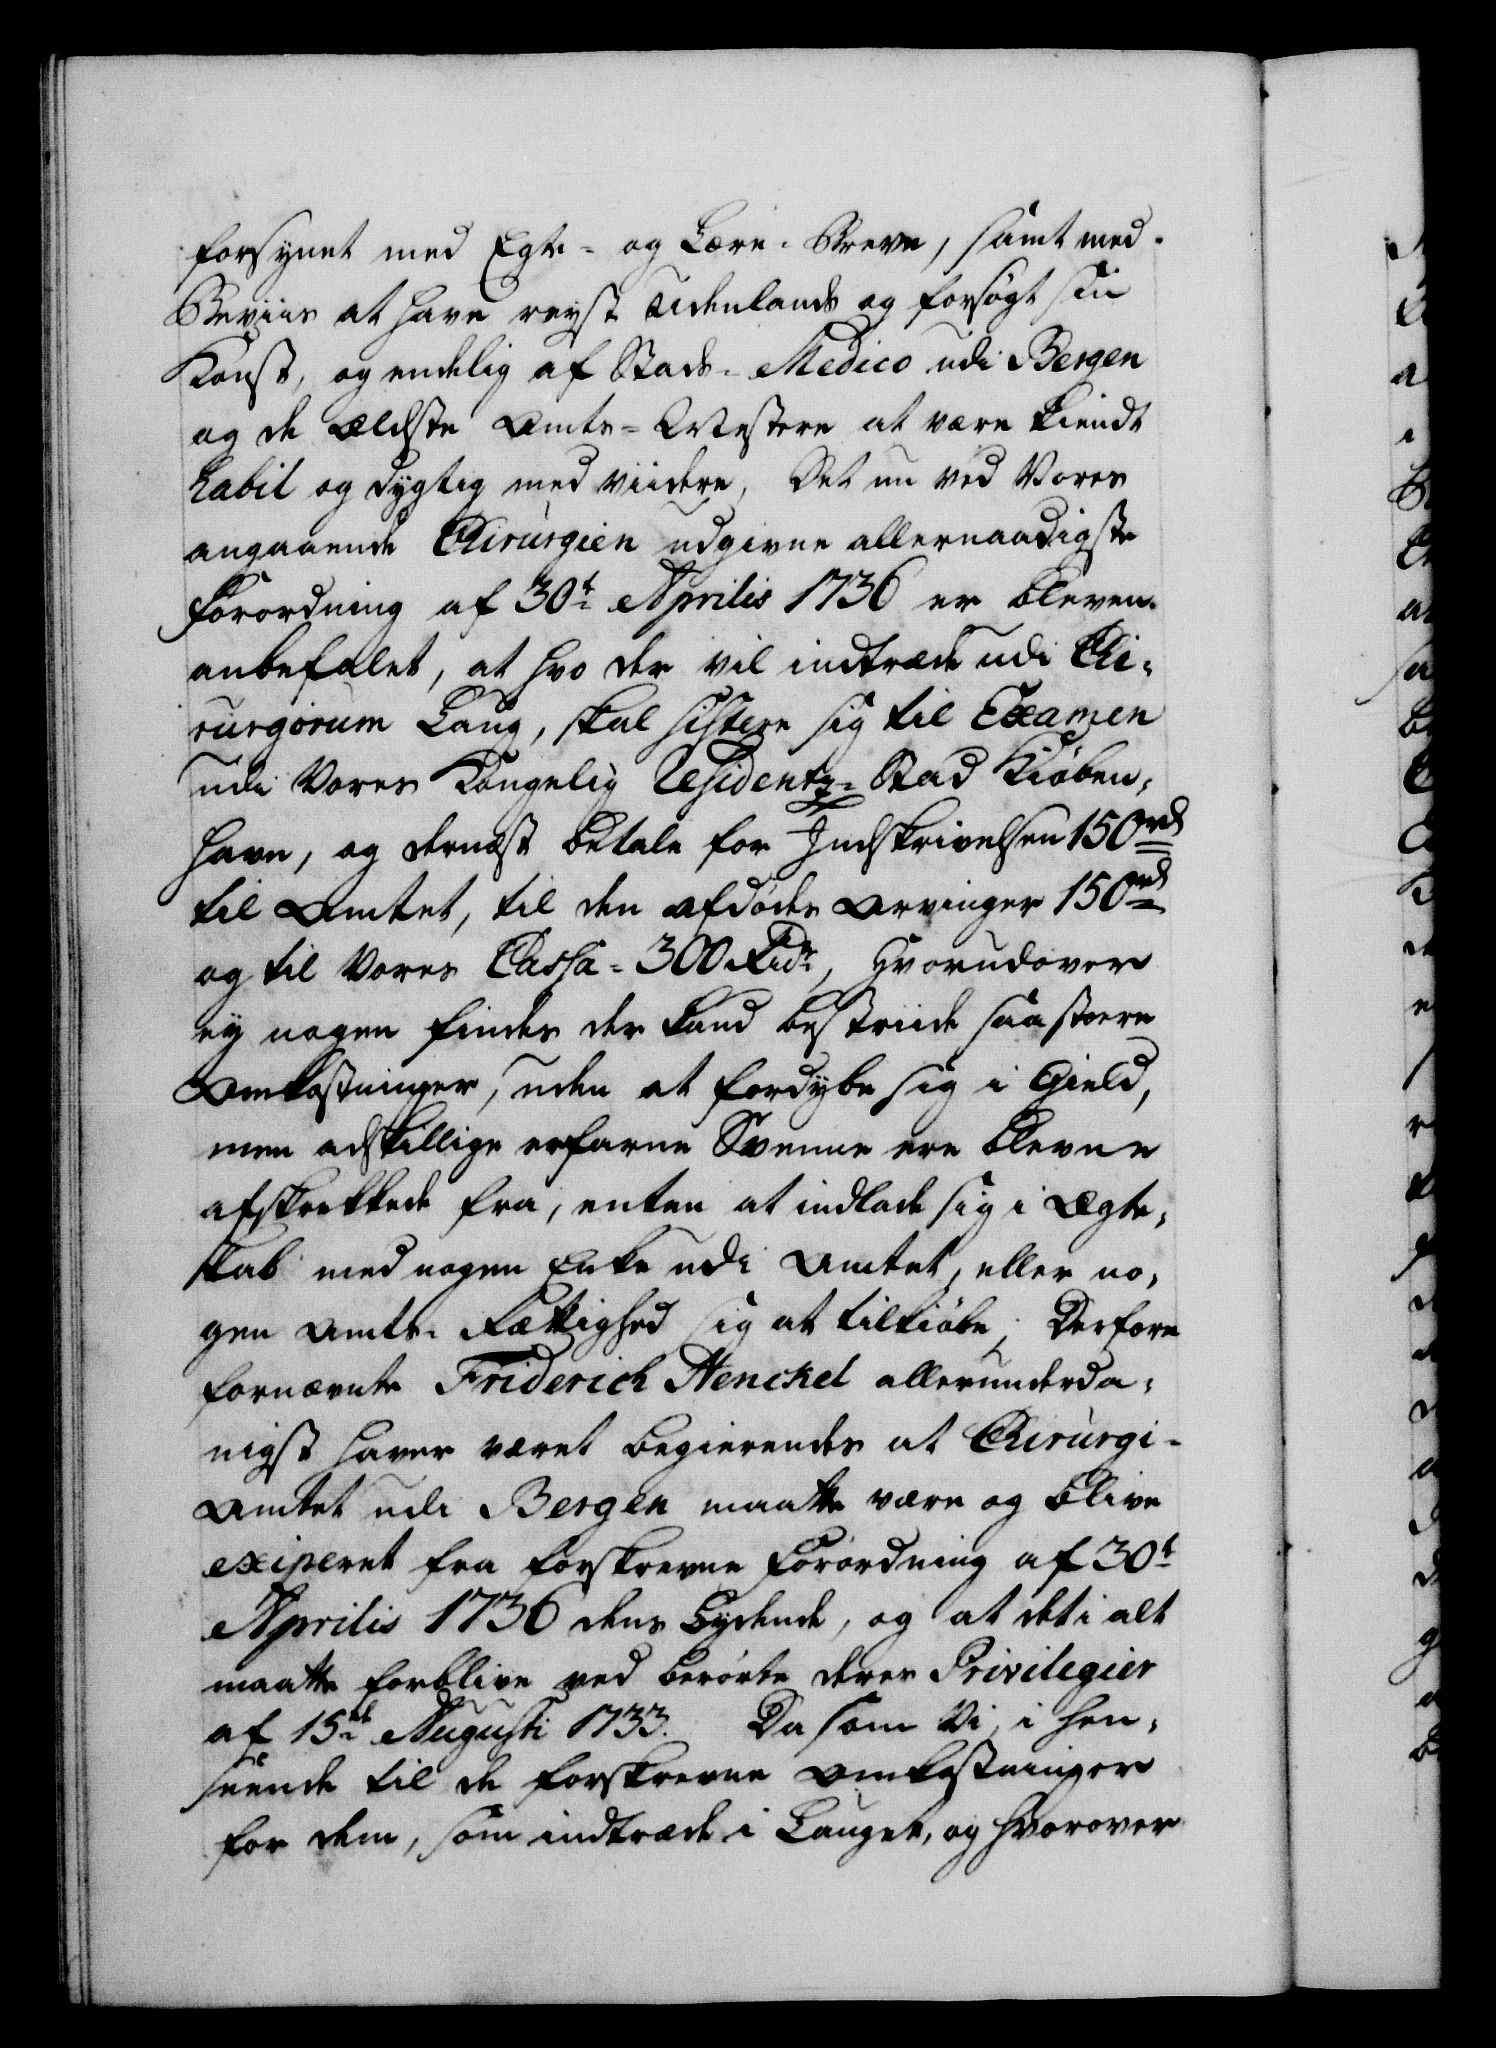 forsynet med Egte- og Lære-Breve, samt med
Beviis at have reyst Udenlands og forsøgt sin
Konst, og endelig af Stads-Medico udi Bergen
og de Ældste Amts-Mestere at være kiendt
habil og dygtig med viidere, Det nu ved Vores
angaaende Chirurgien udgivne allernaadigste
Forordning af 30t Aprilis 1736 er bleven
anbefalet, at hvo der vil indtræde udi Chi-
rurgorum Laug, skal sistere sig til Examen
udi Vores Kongelig Residentz-Stad Kiøben-
havn, og dernæst betale for Indskrivelsen 150 rd
til Amtet, til den afdødes Arvinger 150 rd
og til Vores Cassa-300 Rdr, Hvorudover
ey nogen findes der kand bestriide saa stoere
Omkostninger, uden at fordybe sig i Gield,
men adskillige erfarne Svenne ere blevne
afskrekkede fra, enten at indlade sig i Ægte-
skab med nogen Enke udi Amtet, eller no-
gen Amts-Rættighed sig at tilkiøbe; Derfore
fornævnte Friderich Henckel allerunderda-
nigst haver været begierendes at Chirurgi-
Amtet udi Bergen maatte være og blive
exiperet fra forskrevne Forordning af 30t
Aprilis 1736 dens Lydende, og at det i alt
maatte forblive ved berørte deres Privilegier
af 15de Augusti 1733. Da som Vi, i Hen-
seende til de forskrevne Omkostninger
for dem, som indtræde i Lauget, og hvorover